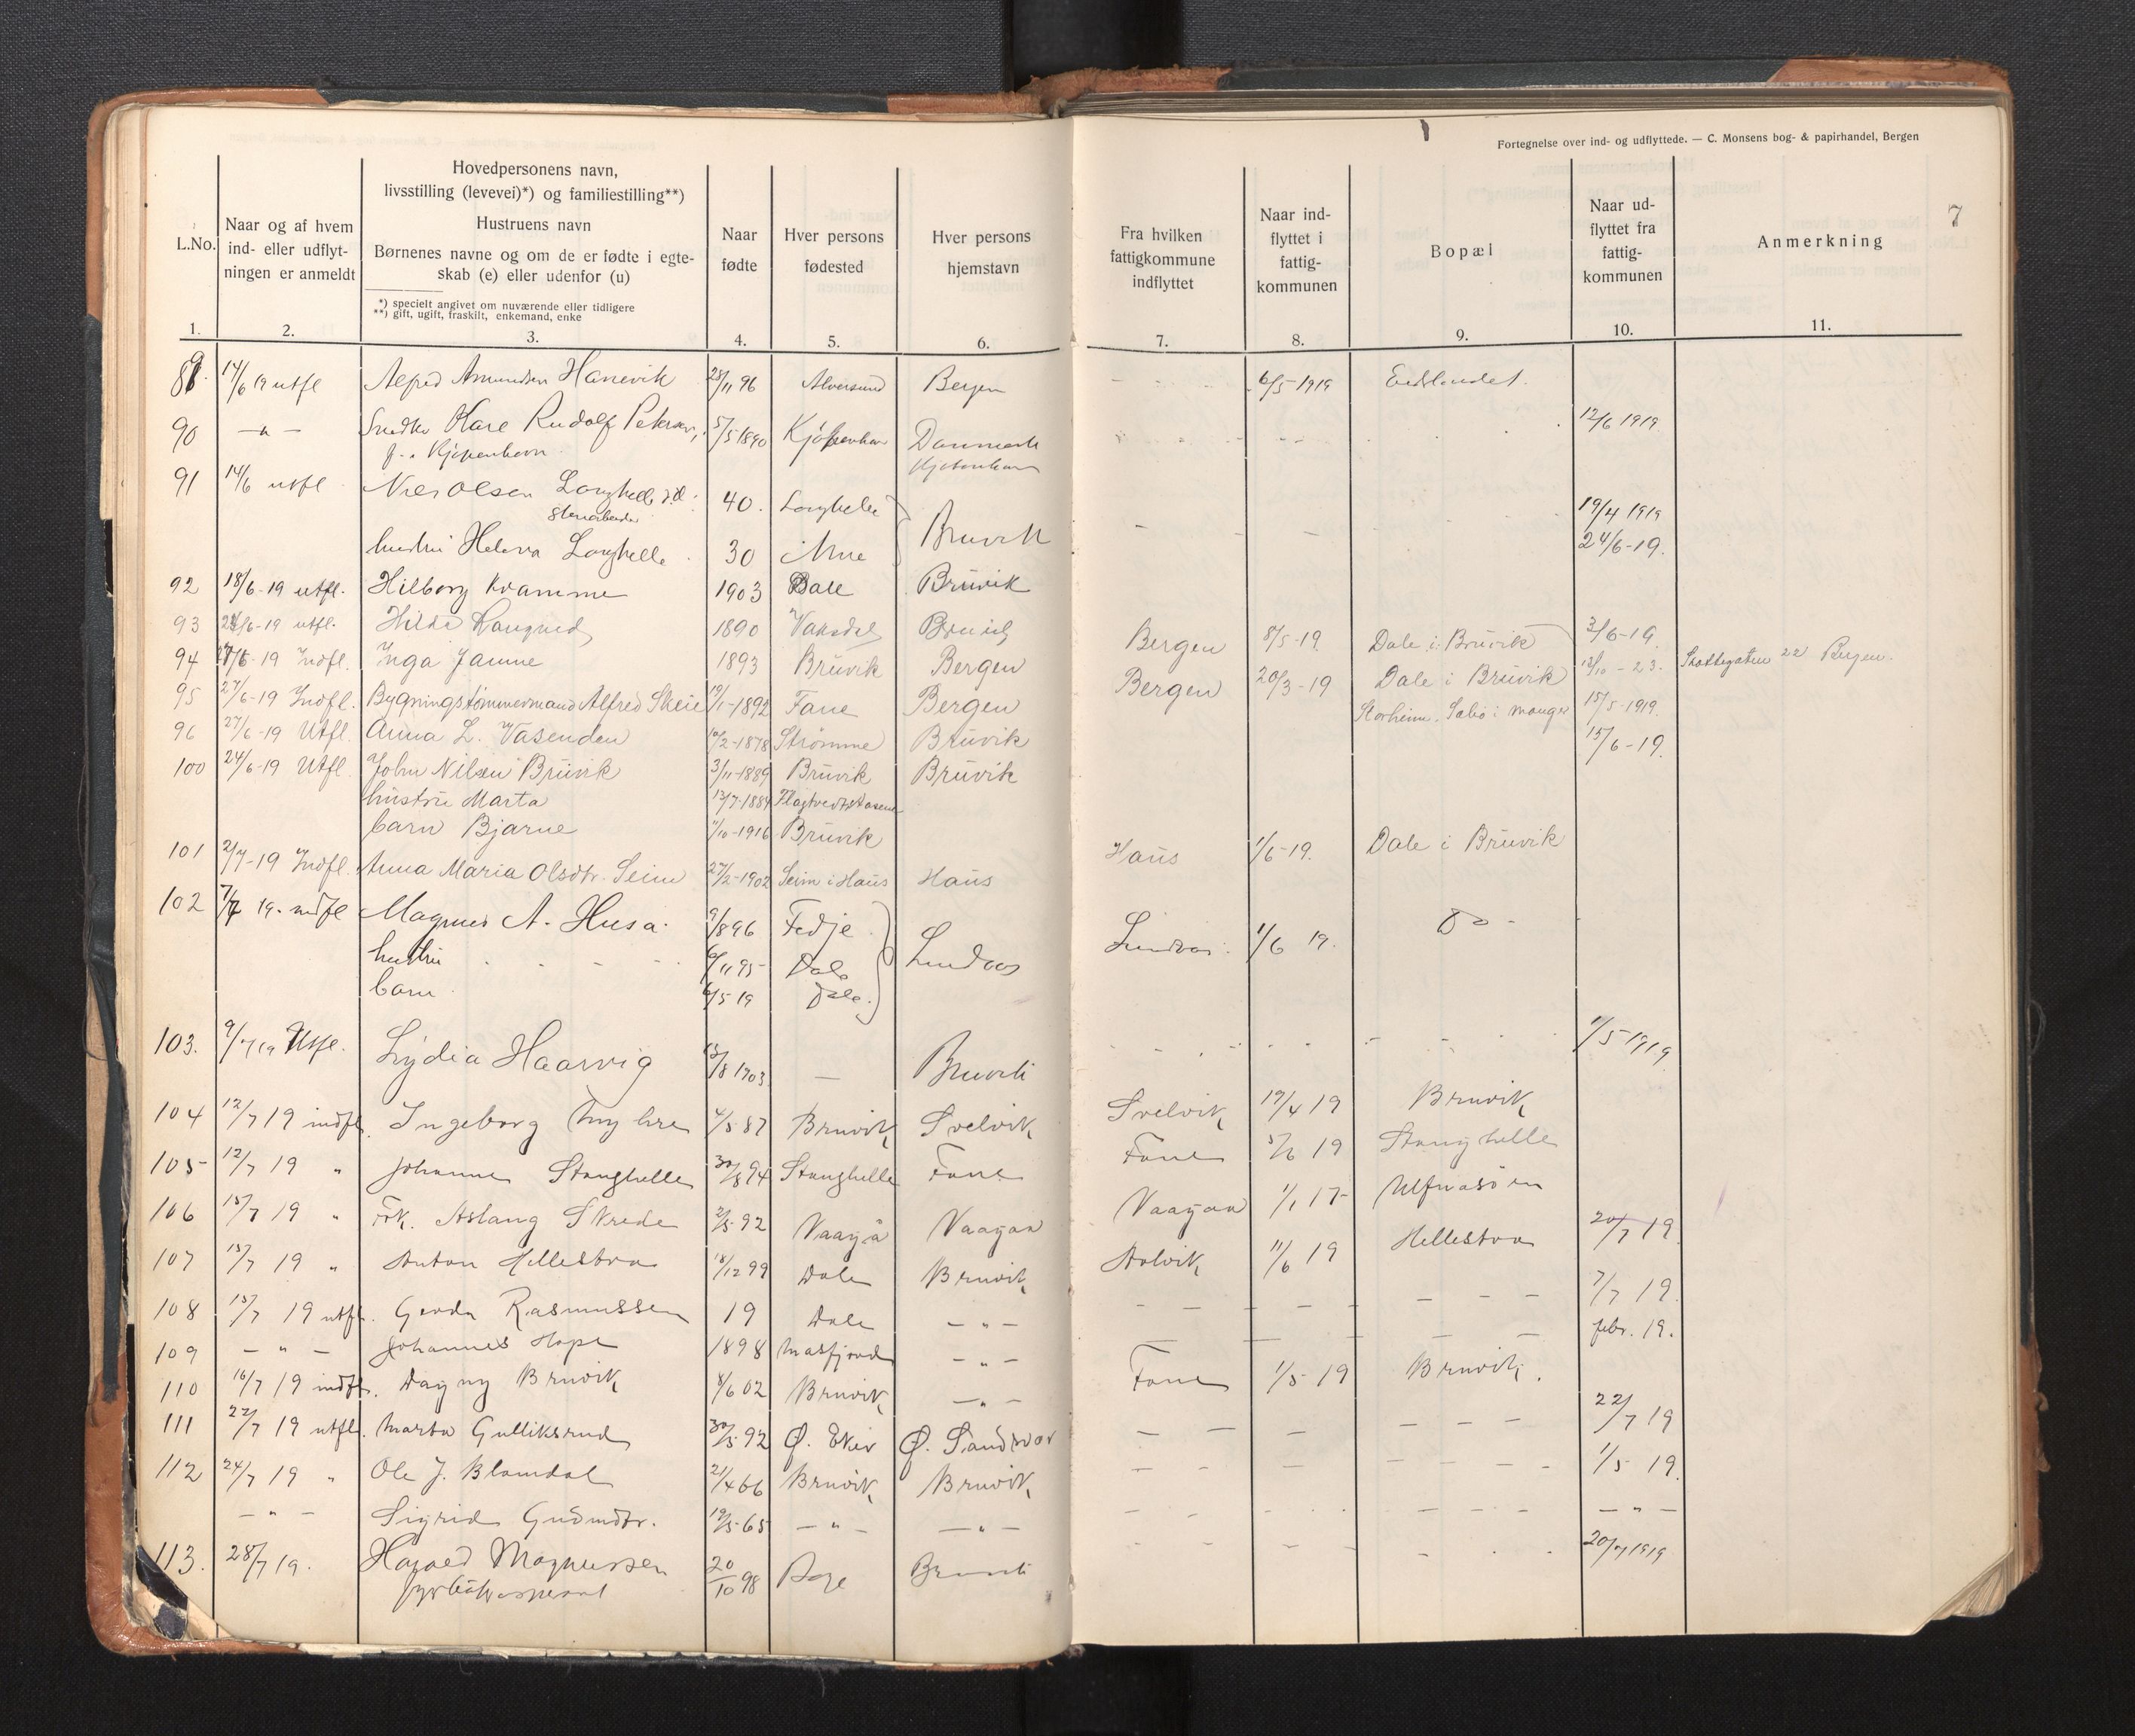 Fortegnelse over ind- og udflyttede. — C. Monsens bog- & papirhandel, Bergen
7
L.No. 1.
Naar og af hvem ind- eller udflyt-ningen er anmeldt 2.
Hovedpersonens navn,
livsstilling (levevei)*) og familiestilling**)
Hustruens navn
Børnenes navne og om de er fødte i egte-
skab (e) eller udenfor (u)
*) specielt angivet om nuværende eller tidligere
**) gift, ugift, fraskilt, enkemand, enke
3.
Naar fødte 4.
Hver persons fødested 5.
Hver persons hjemstavn 6.
Fra hvilken fattigkommune indflyttet 7.
Naar ind-flyttet i fattig-kommunen 8.
Bopæl 9.
Naar ud-flyttet fra fattig-kommunen 10.
Anmerkning 11.
14/6 19 utfl Alfred Amundsen Hanevik 25/11 96 Alversund Bergen 6/5 1919
90 — " — Rudolf Petersen, 5/5 1890 Kjøbenhavn Danmark 12/6 1919
Kjøbenhavn Kjøbenhavn
91 14/6 utfl Nils Olsen Langhelle 40. Langhelle Bruvik 19/4 1919
hustru Helena Langhelle 30 Arne 24/6-19.
92 18/6-19 utfl. Hilborg Kvamme 1903 Dale Bruvik
93 24/6-19 utfl. Hilda 1890 Vaksdal Bruvik 3/6-19
94 27/6-19 Indfl. Inga Janne 1893 Bruvik Bergen Bergen 8/5-19. Dale i Bruvik 22 Bergen.
95 27/6-19 Indfl. Bygningstømmermand Alfred Skeie 19/1-1892 Fane Bergen Bergen 20/3-19 Dale i Bruvik
96 27/6-19 Utfl. Anna L. Vasenden 10/2-1878 Strømme Bruvik Storheim. Sæbø i Manger 15/5-1919.
100 24/6-19 Utfl. John Nilsen Bruvik 3/11-1889 Bruvik Bruvik 15/6-19.
hustru Marta 13/7-1884
barn Bjarne 11/10-1916 Bruvik
101 2/7-19 Indfl. Anna Maria Olsdtr. Seim 27/2-1902 Seim i Haus Haus Haus 1/6-19. Dale i Bruvik
102 7/7 19. indfl Magnus A. Husa. 9/8 96 Fedje Lindaas Lindaas 1/6 19. Do -
hustru 6/11 95 Dale
barn 6/5 19 Dale.
103. 9/7 19 Utfl. Lydia Haarvig 13/8 1903 — Bruvik 1/5 1919
104 12/7 19 indfl. Ingeborg Myhre 4/5 87 Bruvik Svelvik Svelvik 19/4 19 Bruvik
105 12/7 19 " Johanne Stanghelle 30/8 94 Stanghelle Fane Fane 5/6 19 Stanghelle
106 15/7 19 " Frk. Aslaug Skrede 2/5 92 Vaagå Vaagaa Vaagaa 1/1 17 Ulfnasøen 20/7 19.
107 15/7 19 " Anton Hellestra 18/12 99 Dale Bruvik Aalvik 11/6 19 Hellestra
108 15/7 19 utfl. Gerda Rasmussen 19 Dale — " — 7/7 19.
109 — " — Johannes Hope 1898 Masfjord — " — febr. 19.
110 16/7 19 indfl. Dagny Bruvik 8/6 02 Bruvik — " — Fane 1/5 19 Bruvik.
111 22/7 19 utfl. Marta Gulliksrud 30/5 92 Ø. Eker Ø. Sandsvær 22/7 19
112 24/7 19 " Ole J. Blomdal 21/4 66 Bruvik Bruvik 1/5 19.
— " — Sigrid Gudmdtr. 19/5 65 — " — — " — — " —
113. 28/7 19. Magnussen 20/10 98 Bruvik